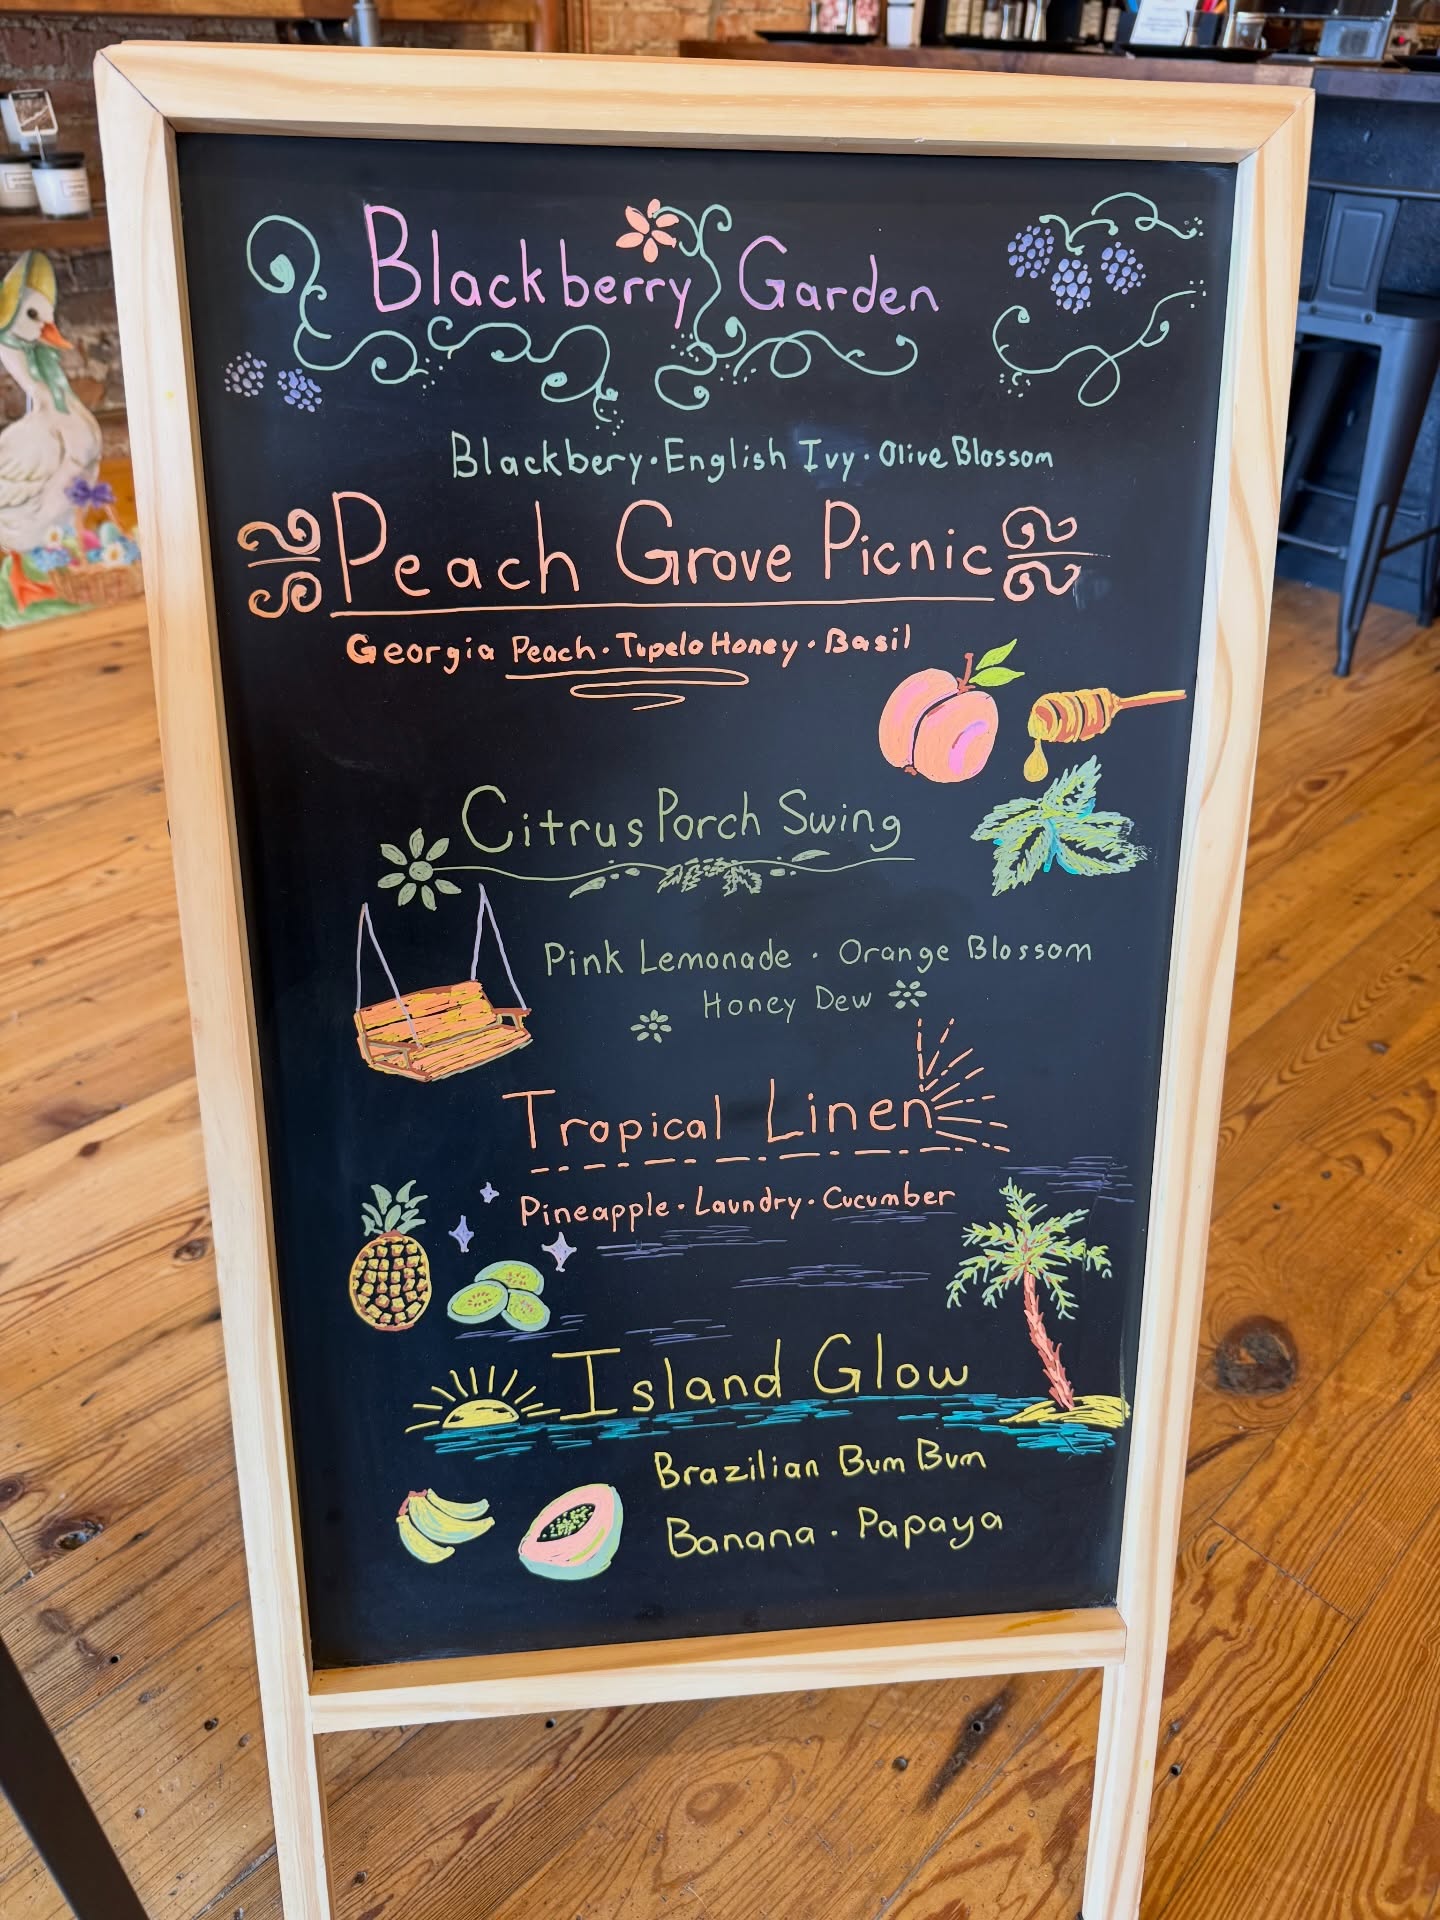 Blackberry Garden
Blackbery · English Ivy · Olive Blossom
Peach Grove Picnic
Georgia Peach · Tupelo Honey · Basil
Citrus Porch Swing
Pink Lemonade · Orange Blossom
Honey Dew
Tropical Linen
Pineapple · Laundry · Cucumber
Island Glow
Brazilian Bum Bum
Banana · Papaya